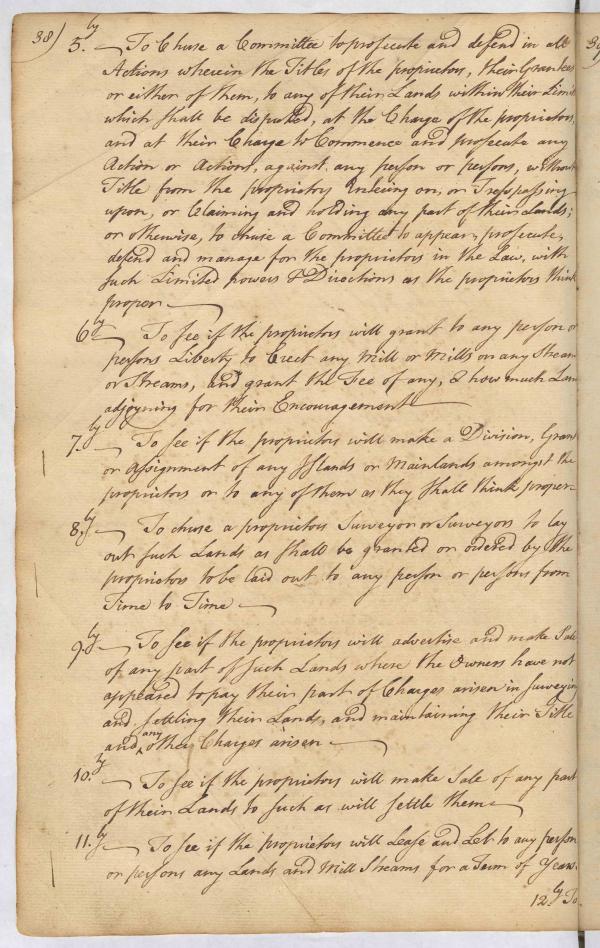 38)
5.ly To Chuse a Committee to prosecute and defend in all
Actions wherein the Titles of the proprietors, their Grantees
or either of them, to any of their Lands within their Limits
which shall be disputed, at the Charge of the proprietors,
and at their Charge to Commence and prosecute any
Action or Actions, against any person or persons, without
Title from the proprietors Entering on, or Tresspassing
upon, or Claiming and holding any part of their Lands;
or otherwise, to chuse a Committee to appear, prosecute,
defend and manage for the proprietors in the Law, with
such Limited powers & Directions as the proprietors think
proper
6ly To see if the proprietors will grant to any person or
persons Liberty to Erect any Mill or Mills on any Stream
or Streams, and grant the Fee of any, & how much Land
adjoyning for their Encouragement
7.ly To see if the proprietors will make a Division, Grant
or Assignment of any Islands or Mainlands amongst the
proprietors or to any of them as they shall think proper
8.ly To chuse a proprietors Surveyor or Surveyors to lay
out such Lands as shall be granted or ordered by the
proprietors to be laid out to any person or persons from
Time to Time
9.ly To see if the proprietors will advertise and make Sale
of any part of such Lands where the Owners have not
appeared to pay their part of Charges arisen in surveying
and settling their Lands, and maintaining their Title
and any other Charges arisen
10.ly To see if the proprietors will make Sale of any part
of their Lands to such as will settle them
11.ly To see if the proprietors will Lease and Let to any person
or persons any Lands and Mill Streams for a Term of Years.
12ly To